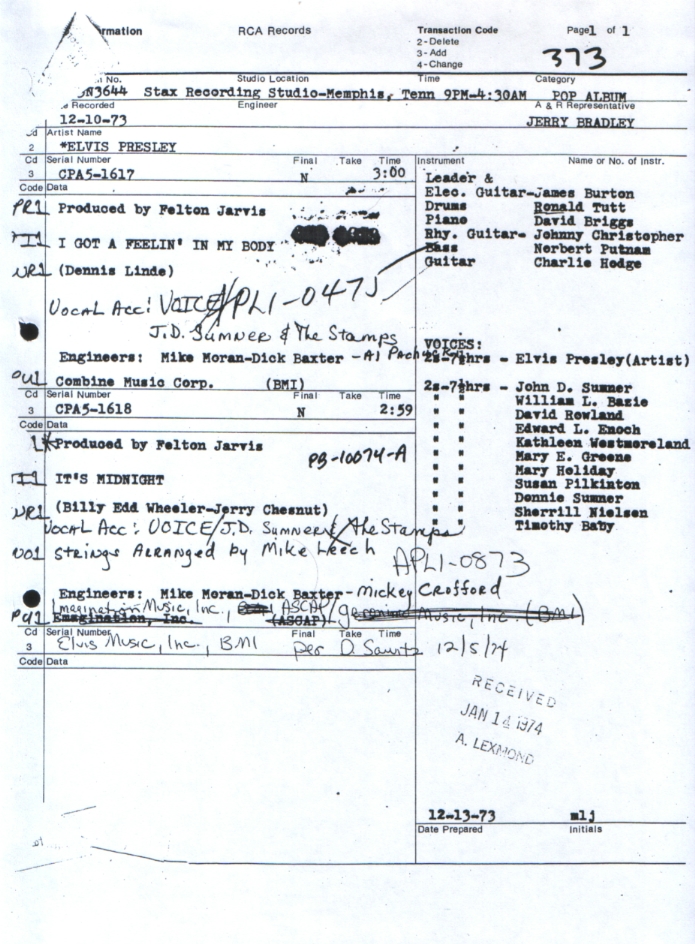 rmation RCA Records Transaction Code Page1 of 1
2-Delete
3-Add
4-Change
373
No. Studio Location Time Category
N3644 Stax Recording Studio-Memphis, Tenn 9PM-4:30AM POP ALBUM
e Recorded Engineer A & R Representative
12-10-73 JERRY BRADLEY
Cd Artist Name
2 *ELVIS PRESLEY
Cd Serial Number Final Take Time Instrument Name or No. of Instr.
3 CPA5-1617 N 3:00 Leader &
Code Data Elec. Guitar-James Burton
PR1 Produced by Felton Jarvis Drums Ronald Tutt
Piano David Briggs
TI1 I GOT A FEELIN' IN MY BODY Rhy. Guitar- Johnny Christopher
Bass Norbert Putnam
WR1 (Dennis Linde) Guitar Charlie Hodge
Vocal Acc: VOICE/ APL1-0475
J.D. Sumner & The Stamps
VOICES:
Engineers: Mike Moran-Dick Baxter - Al 2s-7½hrs - Elvis Presley(Artist)
PU1 Combine Music Corp. (BMI) 2s-7½hrs - John D. Sumner
Cd Serial Number Final Take Time " " William L. Bazie
3 CPA5-1618 N 2:59 " " David Rowland
Code Data " " Edward L. Enoch
1* Produced by Felton Jarvis " " Kathleen Westmoreland
PB-10074-A " " Mary E. Greene
TI1 IT'S MIDNIGHT " " Mary Holiday
" " Susan Pilkinton
WR1 (Billy Edd Wheeler-Jerry Chesnut) " " Donnie Sumner
" " Sherrill Nielsen
Vocal Acc: VOICE/J.D. Sumner & the Stamps " " Timothy Baty
VO1 Strings Arranged by Mike Leech APL1-0873
Engineers: Mike Moran-Dick Baxter - Mickey Crofford
Imagination Music, Inc., ASCAP/ Geronimo Music, Inc. (BMI)
PU1 Emagination, Inc. (ASCAP)
Cd Serial Number Final Take Time
3 Elvis Music, Inc., BMI per D. 12/5/74
Code Data
RECEIVED
JAN 14 1974
A. LEXMOND
12-13-73 mlj
Date Prepared Initials